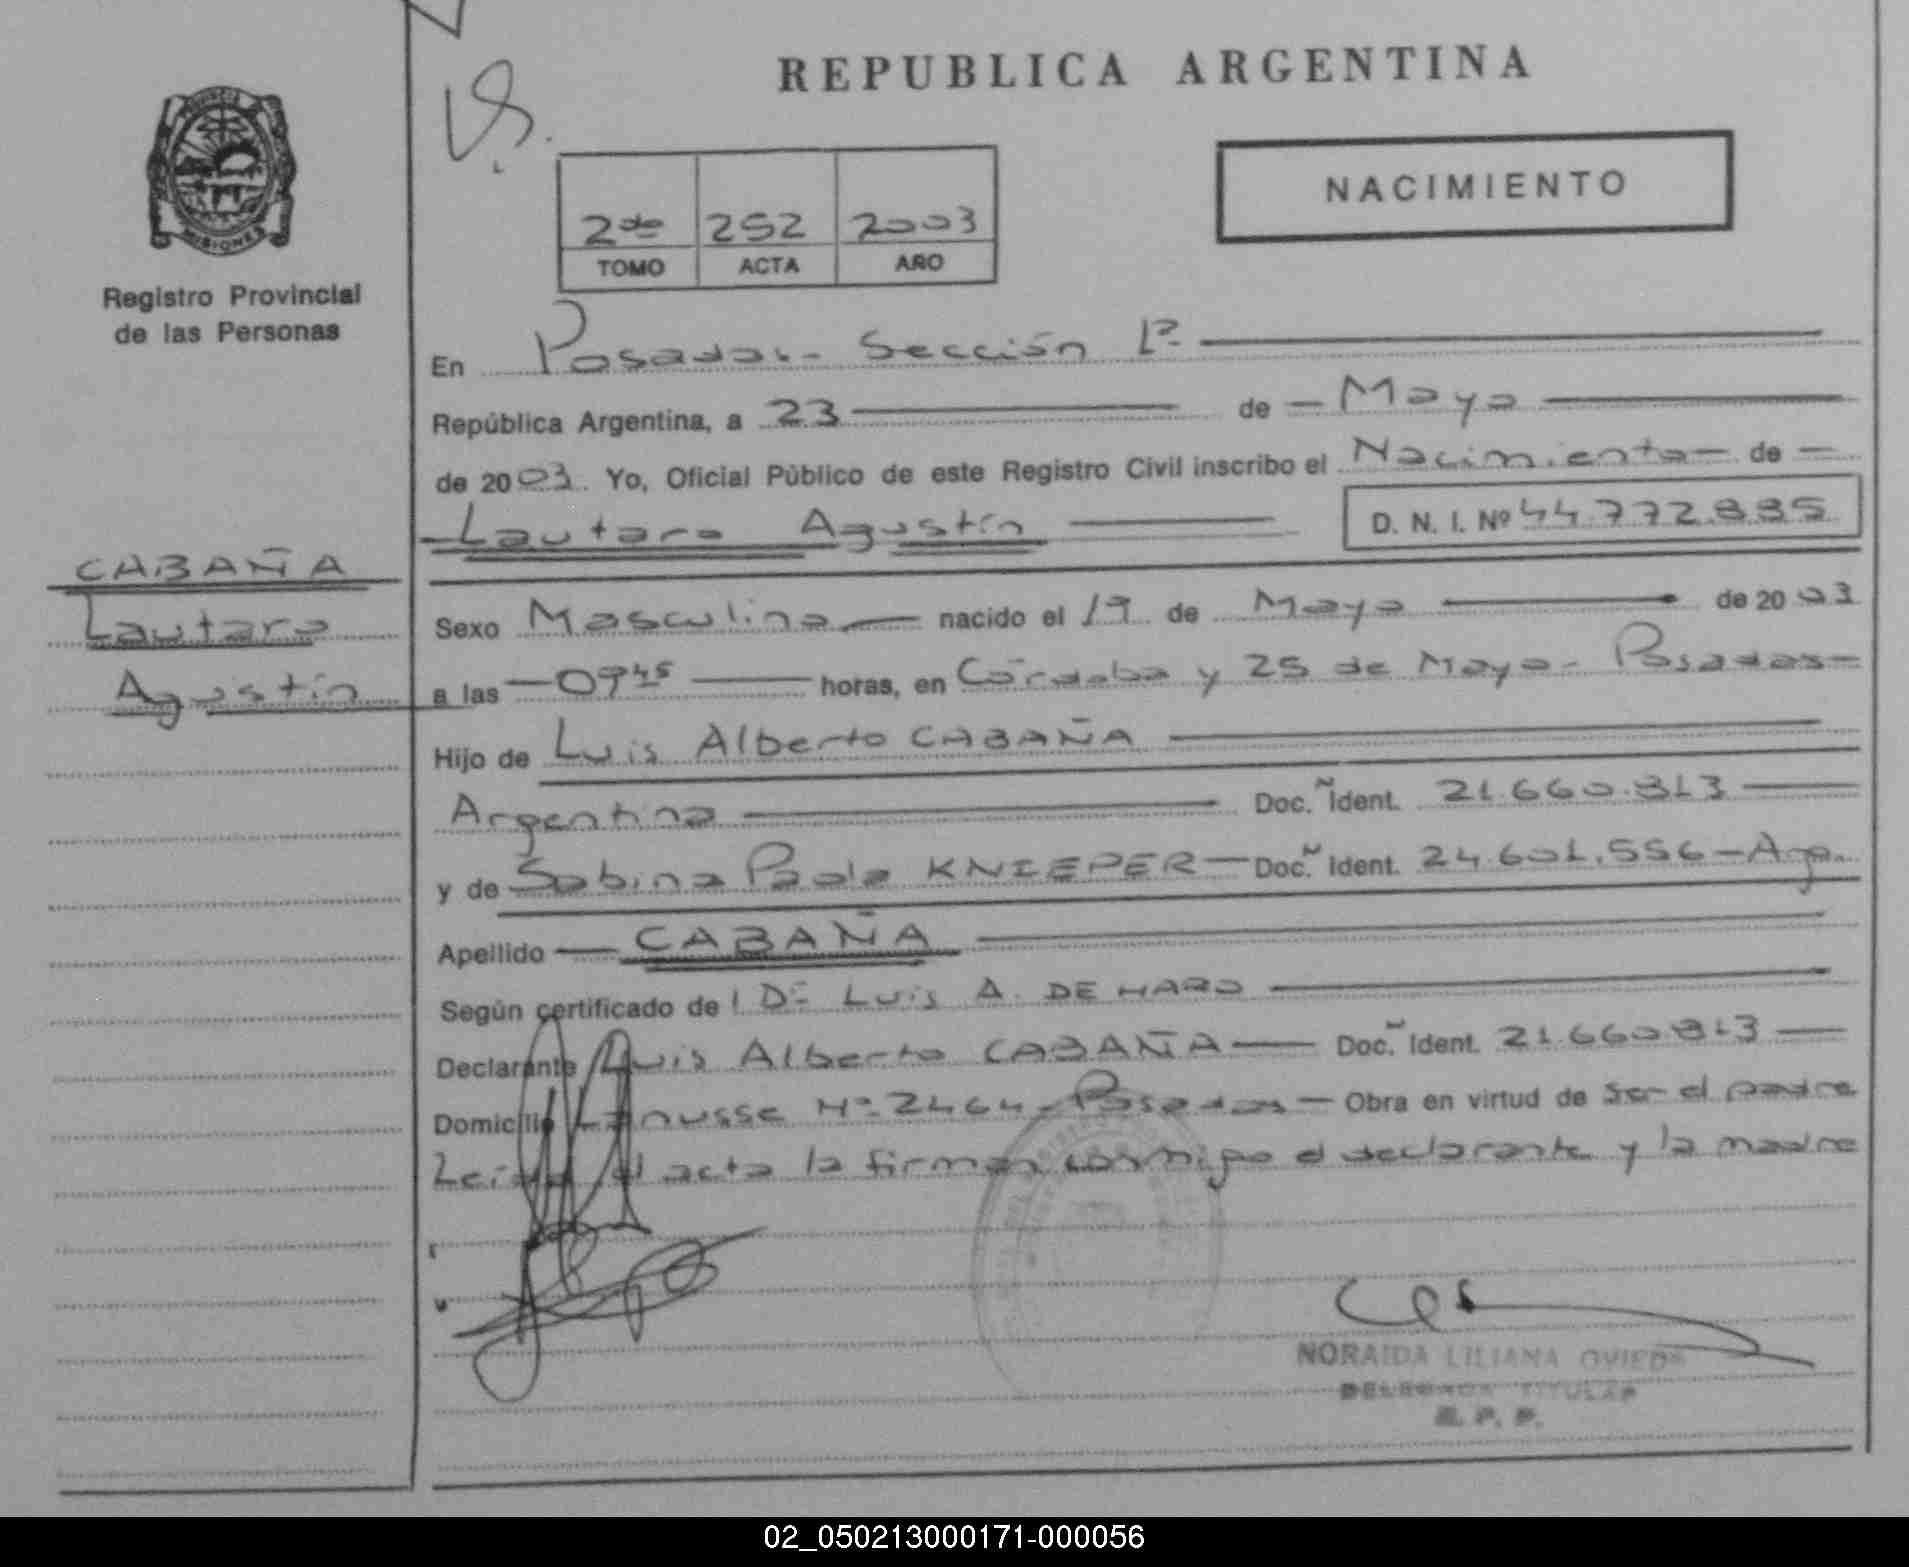 REPUBLICA ARGENTINA
NACIMIENTO
2do 252 2003
TOMO ACTA AÑO
PROVINCIA
MISIONES
Registro Provincial
de las Personas
CABAÑA
Lautaro
Agustín
En Posadas- Sección 1ª
República Argentina, a 23 de Mayo
de 2003. Yo, Oficial Público de este Registro Civil inscribo el Nacimiento de
Lautaro Agustín D. N. I. Nº 44.772.885
Sexo Masculino nacido el 19 de Mayo de 2003
a las 09 45 horas, en Córdoba y 25 de Mayo- Posadas-
Hijo de Luis Alberto CABAÑA
Argentino Doc. Ident. 21.660.813
y de Sabina Paola KNIEPER Doc. Ident. 24.601.556-Arg.
Apellido CABAÑA
Según certificado de Dr Luis A. DE HARO
Declarante Luis Alberto CABAÑA Doc. Ident. 21.660.813
Domicilio Lanusse Nº 2464-Posadas- Obra en virtud de ser el padre
Leída el acta la firman conmigo el declarante y la madre
NORAIDA LILIANA OVIEDO
DELEGADA TITULAR
R. P. P.
02_050213000171-000056